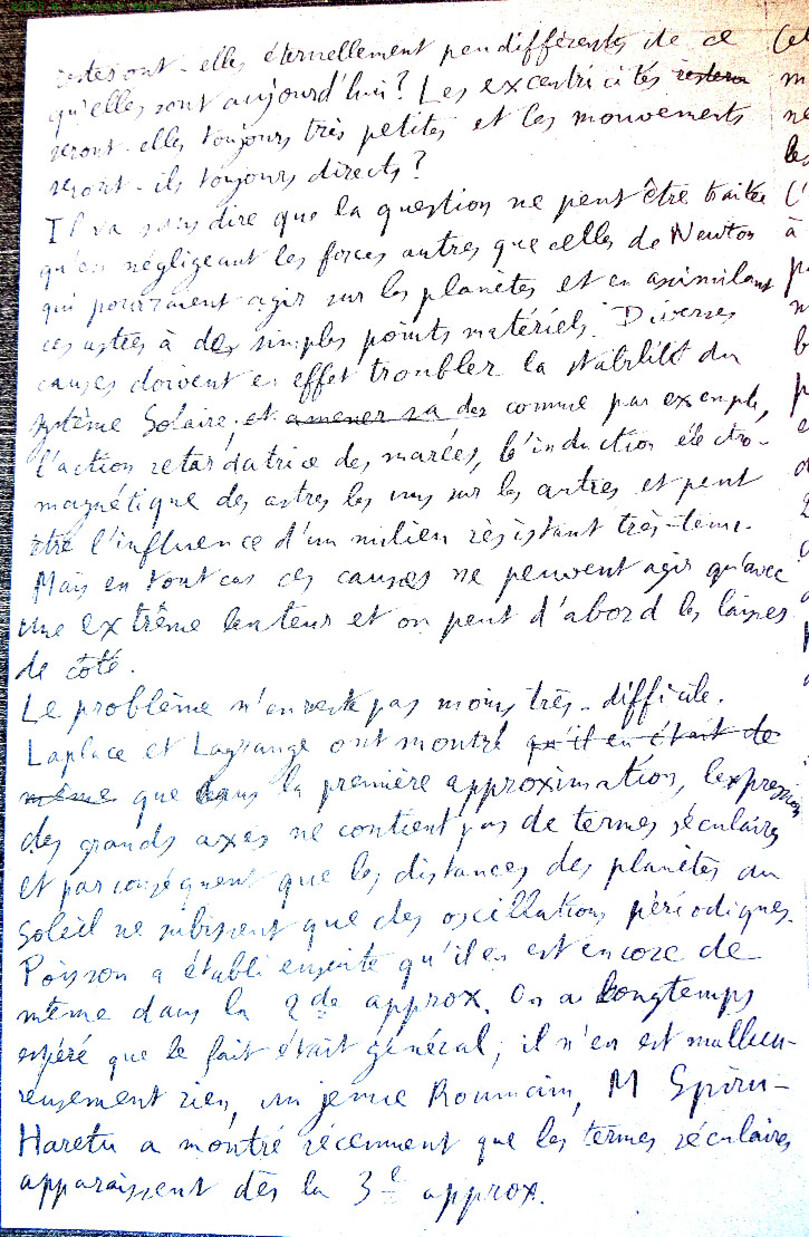 resteront-elles éternellement peu différentes de ce
qu'elles sont aujourd'hui? Les excentricités
seront-elles toujours très petites et les mouvements
seront-ils toujours directs?
Il va sans dire que la question ne peut être traitée
qu'en négligeant les forces autres que celles de Newton
qui pourraient agir sur les planètes et en assimilant
ces astres à des simples points matériels. Diverses
causes doivent en effet troubler la stabilité du
système Solaire, et amener sa des comme par exemple,
l'action retardatrice des marées, l'induction électro-
magnétique des astres les uns sur les autres et peut
être l'influence d'un milieu résistant très-tenu.
Mais en tout cas ces causes ne peuvent agir qu'avec
une extrême lenteur et on peut d'abord les laisser
de côté.
Le problème n'en reste pas moins très-difficile.
Laplace et Lagrange ont montré qu'il en était de
même que dans la première approximation, l'expression
des grands axes ne contient pas de termes séculaires
et par conséquent que les distances des planètes au
Soleil ne subissent que des oscillations périodiques.
Poisson a établi ensuite qu'il en est encore de
même dans la 2de approx. On a longtemps
espéré que le fait était général; il n'en est malheu-
reusement rien, un jeune Roumain, M Spiru-
Haretu a montré récemment que les termes séculaires
apparaissent dès la 3e approx.